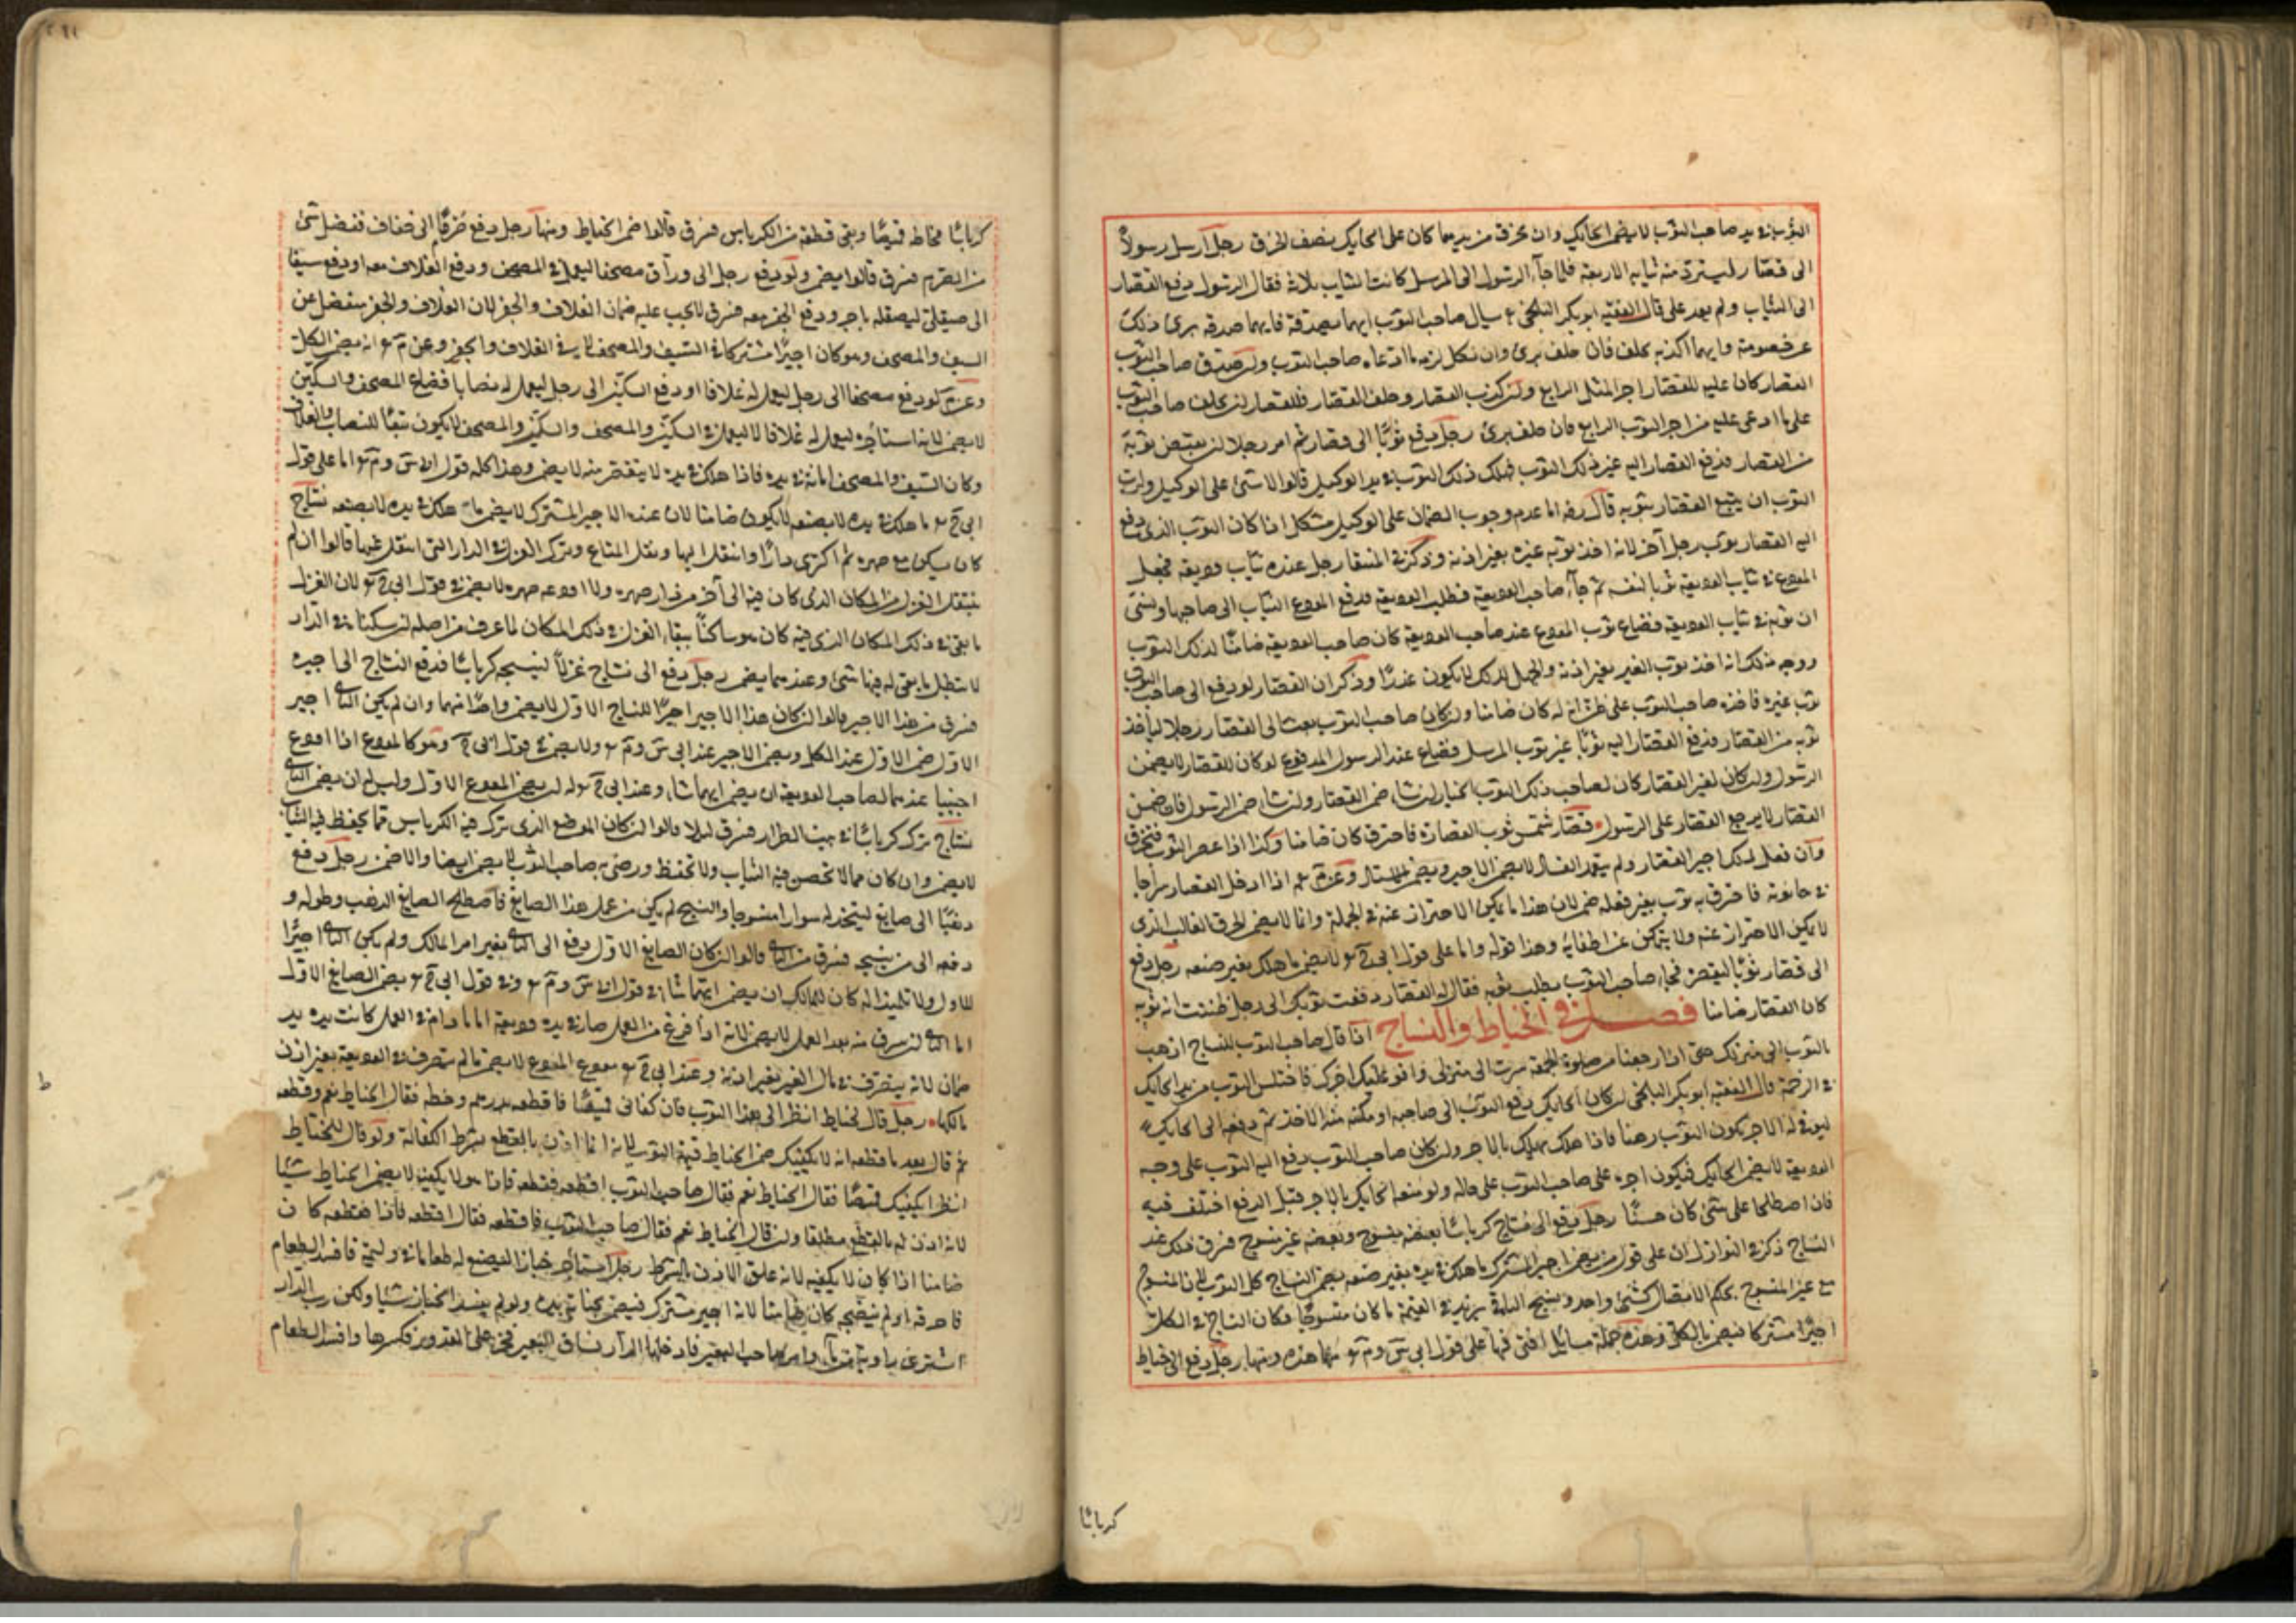 الثوب في يد صاحب الثوب لا يضمن الحايك وان تخرق من يديهما كان على الحايك نصف الخرق رجل ارسل رسولا
الى قصار ليسترد منه ثيابه الاربعة فلما جاء الرسول الى المرسل كانت الثياب ثلاثة فقال الرسول دفع القصار
الى الثياب ولم يعد على قال الفقيه ابو بكر البلخي يسال صاحب الثوب ايهما يصدقه فايهما صدقه برئ ذلك
عن خصومته وايهما اكذبه يحلف فان حلف برئ وان نكل لزمه ما ادعاه صاحب الثوب وان صدق صاحب الثوب
القصار كان عليه للقصار اجر المثل الرابع وان كذب القصار وحلف القصار فللقصار ان يحلف صاحب الثوب
على ما ادعى عليه من اجر الثوب الرابع فان حلف برئ رجل دفع ثوبا الى قصار ثم امر رجلا ان يقبض ثوبه
من القصار فدفع القصار اليه غير ذلك الثوب فهلك ذلك الثوب في يد الوكيل قالوا لا شئ على الوكيل ولرب
الثوب ان يتبع القصار بثوبه قال رضه اما عدم وجوب الضمان على الوكيل مشكل اذا كان الثوب الذي دفع
اليه القصار ثوب رجل آخر لانه اخذ ثوب غيره بغير اذنه وذكر في المنتقى رجل عنده ثياب وديعة فجعل
المودع في ثياب الوديعة ثوبا لنفسه ثم جاء صاحب الوديعة فطلب الوديعة فدفع المودع الثياب الى صاحبها ونسي
ان ثوبه في ثياب الوديعة فضاع ثوب المودع عند صاحب الوديعة كان صاحب الوديعة ضامنا لذلك الثوب
ووجه ذلك انه اخذ ثوب الغير بغير اذنه والجهل لذلك لا يكون عذرا وذكر ان القصار لو دفع الى صاحب الثوب
ثوب غيره فاخذه صاحب الثوب على ظن انه له كان ضامنا وان كان صاحب الثوب بعث الى القصار رجلا لياخذ
ثوبه من القصار فدفع القصار اليه ثوبا غير ثوب المرسل فضاع عند الرسول المدفوع لو كان للقصار لا يضمن
الرسول وان كان لغير القصار كان لصاحب ذلك الثوب الخيار ان شاء ضمن القصار وان شاء ضمن الرسول فان ضمن
القصار لا يرجع القصار على الرسول قصار شمس ثوب القصارة فاحترق كان ضامنا وكذا اذا عصر الثوب فتخرق
وان فعل ذلك اجير القصار ولم يتعمد الفساد لا يضمن الاجير ويضمن الاستاذ وعن م اذا ادخل القصار سراجا
في حانوته فاحترق به ثوب بغير فعله ضمن لان هذا ما يمكن الاحتراز عنه في الجملة وانما لا يضمن الحرق الغالب الذي
لا يمكن الاحتراز عنه ولا يتمكن من اطفائه وهذا قوله واما على قول ابي ح لا يضمن ما هلك بغير صنعه رجل دفع
الى قصار ثوبا ليقصره فجاء صاحب الثوب يطلب ثوبه فقال له القصار دفعت ثوبك الى رجل ظننت انه ثوبه
كان القصار ضامنا فصل في الخياط والنساج اذا قال صاحب الثوب للنساج اذهب
بالثوب الى منزلك حتى اذا رجعنا من صلوة الجمعة سرت الى منزلي واوفو عليك اجرك فاختلس الثوب من يد الحايك
في الزحمة قال الفقيه ابو بكر البلخي ان كان الحايك دفع الثوب الى صاحبه او مكنه من الاخذ ثم دفعه الى الحايك
ليوفي له الاجر يكون الثوب رهنا فاذا هلك يهلك بالاجر وان كان صاحب الثوب دفع اليه الثوب على وجه
الوديعة لا يضمن الحايك فيكون اجره على صاحب الثوب على حاله ولو منعه الحايك بالاجر قبل الدفع اختلف فيه
فان اصطلحا على شئ كان حسنا رجل دفع الى نساج كرباسا بعضه منسوج وبعضه غير منسوج فسرق ذلك عند
النساج ذكر في النوازل ان على قول من يضمن اجير المشترك ما هلك في يده بغير صنعه يضمن النساج كل الثوب لان المنسوج
مع غير المنسوج بحكم الاتصال كشئ واحد ونسج الباقي يزيد في القيمة ما كان منسوجا فكان النساج في الكل
اجيرا مشتركا فيضمن بالكل وهذه جملة مسايل افتى فيها على قول ابي س وم منها هذه ومنها رجل دفع الى خياط
كرباسا
كرباسا فخاطه قميصا وبقي قطعة من الكرباس فسرق قالوا ضمن الخياط ومنها رجل دفع صرما الى خفاف ففضل شئ
من الصرم فسرق قالوا يضمن ولو دفع رجل الى وراق مصحفا ليعمل في المصحف ودفع الغلاف معه او دفع سيفا
الى صيقلي ليصقله باجر ودفع الجفن معه فسرق لا يجب عليه ضمان الغلاف والجفن لان الغلاف والجفن منفصل عن
السيف والمصحف وهو كان اجيرا مشتركا في السيف والمصحف لا في الغلاف والجفن وعن م انه يضمن الكل
وعن م لو دفع مصحفا الى رجل ليعمل له غلافا او دفع السكين الى رجل ليعمل له نصابا فضاع المصحف والسكين
لا يضمن لانه استاجره ليعمل له غلافا لا ليعمل في السكين والمصحف والسكين والمصحف لا يكون تبعا للنصاب والغلاف
وكان السيف والمصحف امانة في يده فاذا هلك في يده لا بتقصير منه لا يضمن وهذا كله قول ابي س وم اما على قول
ابي ح ما هلك في يده لا بصنعه لا يكون ضامنا لان عنده الاجير المشترك لا يضمن ما هلك في يده لا بصنعه نساج
كان يسكن مع صهره ثم اكترى دارا وانتقل اليها ونقل المتاع وترك الغزل في الدار التي انتقل عنها قالوا ان لم
ينتقل الغزل من المكان الذي كان فيه الى آخر من دار صهره ولا اودعه صهره لا يضمن في قول ابي ح لان الغزل
ما بقي في ذلك المكان الذي فيه كان هو ساكنا ببقاء الغزل في ذلك المكان لما عرف من اصله ان سكناه في الدار
لا تبطل ما بقي له فيها شئ وعندهما يضمن رجل دفع الى نساج غزلا لينسجه كرباسا فدفع النساج الى اجيره
فسرق من هذا الاجير قالوا ان كان هذا الاجير اجيرا للنساج الاول لا يضمن واحد منهما وان لم يكن الثاني اجير
الاول ضمن الاول عند الكل ويضمن الاجير عند ابي س وم ولا يضمن في قول ابي ح وهو كالمودع اذا اودع
اجنبيا عندهما لصاحب الوديعة ان يضمن ايهما شاء وعند ابي ح له ان يضمن المودع الاول وليس له ان يضمن الثاني
نساج ترك كرباسا في بيت الطراز فسرق ليلا قالوا ان كان الموضع الذي ترك فيه الكرباس مما يحفظ فيه الثياب
لا يضمن وان كان مما لا تحصن فيه الثياب ولا تحفظ ورضي به صاحب الثوب لا يضمن ايضا والا ضمن رجل دفع
ذهبا الى صايغ ليتخذ له سوارا منسوجا والنسج لم يكن من عمل هذا الصايغ فاصطلح الصايغ الذهب وطوله و
دفعه الى من ينسجه فسرق من الثاني قالوا ان كان الصايغ الاول دفع الى الثاني بغير امر المالك ولم يكن الثاني اجيرا
للاول ولا تلميذا له كان للمالك ان يضمن ايهما شاء في قول ابي س وم وفي قول ابي ح يضمن الصايغ الاول
اما الثاني ان سرق منه بعد العمل لا يضمن لانه اذا فرغ من العمل صار في يده وديعة اما ما دام في العمل كانت يده يد
ضمان لانه يتصرف في مال الغير بغير اذنه وعند ابي ح مودع المودع لا يضمن ما لم يتصرف في الوديعة بغير اذن
مالكها رجل قال لخياط انظر الى هذا الثوب فان كفاني قميصا فاقطعه بدرهم وخطه فقال الخياط نعم وقطعه
ثم قال بعد ما قطعه انه لا يكفيك ضمن الخياط قيمة الثوب لانه انما اذن بالقطع بشرط الكفاية ولو قال للخياط
انظر ايكفيك قميصا فقال الخياط نعم فقال صاحب الثوب اقطعه فقطعه فاذا هو لا يكفيه لا يضمن الخياط شيئا
لانه اذن له بالقطع مطلقا وان قال الخياط نعم فقال صاحب الثوب فاقطعه فقال اقطعه فاذا فقطعه كان
ضامنا اذا كان لا يكفيه لانه علق الاذن بالشرط رجل استاجر خبازا ليصنع له طعاما في وليمة فافسد الطعام
فاحرقه او لم ينضجه كان ضامنا لانه اجير مشترك فيضمن بجناية يده ولو لم يفسد الخباز شيئا ولكن رب الدار
اشترى راوية من ماء وامر صاحب البعير فادخلها الدار فساق البعير فخر على القدور فكسرها وافسد الطعام